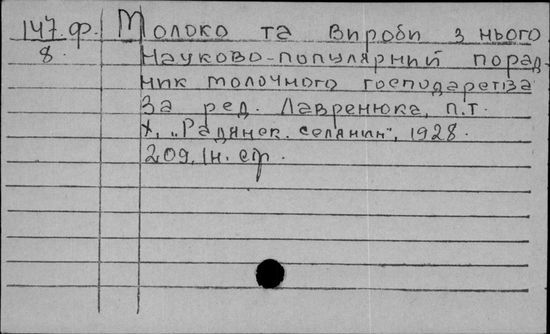 147.ф. Молоко та вироби з нього
8. Науково-популярний порад-
ник молочного господарства
За ред. Лавренюка, П.Т.
Х, „Радянск. селянин", 1928.
209, Iн. ср.